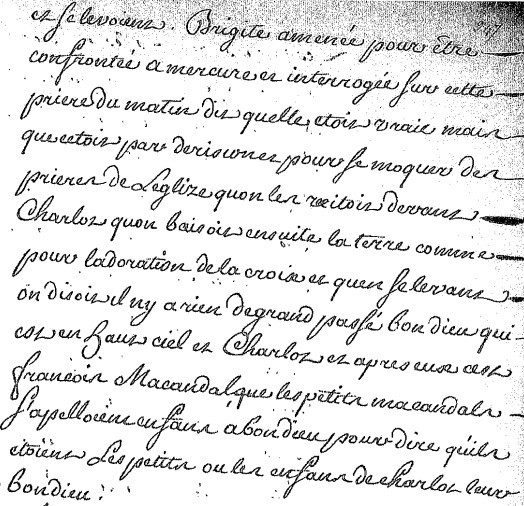 et se levoient. Brigite amenée pour être
confrontée a mercure et interrogée sur cette
priere du matin dit quelle etoit vraie mais
que cetoit par derision et pour se moquer des
prieres de Léglize quon les recitoit devant
Charlot quon baisoit ensuite la terre comme
pour ladoration de la croix et quen se levant
on disoit il ny a rien de grand passé bon dieu qui
est en haut ciel et Charlot et apres eux cest
francois Macandal que les petits macandals
s'apelloient enfans à bon dieu pour dire quils
etoient les petits ou les enfans de charlot leur
bon dieu.